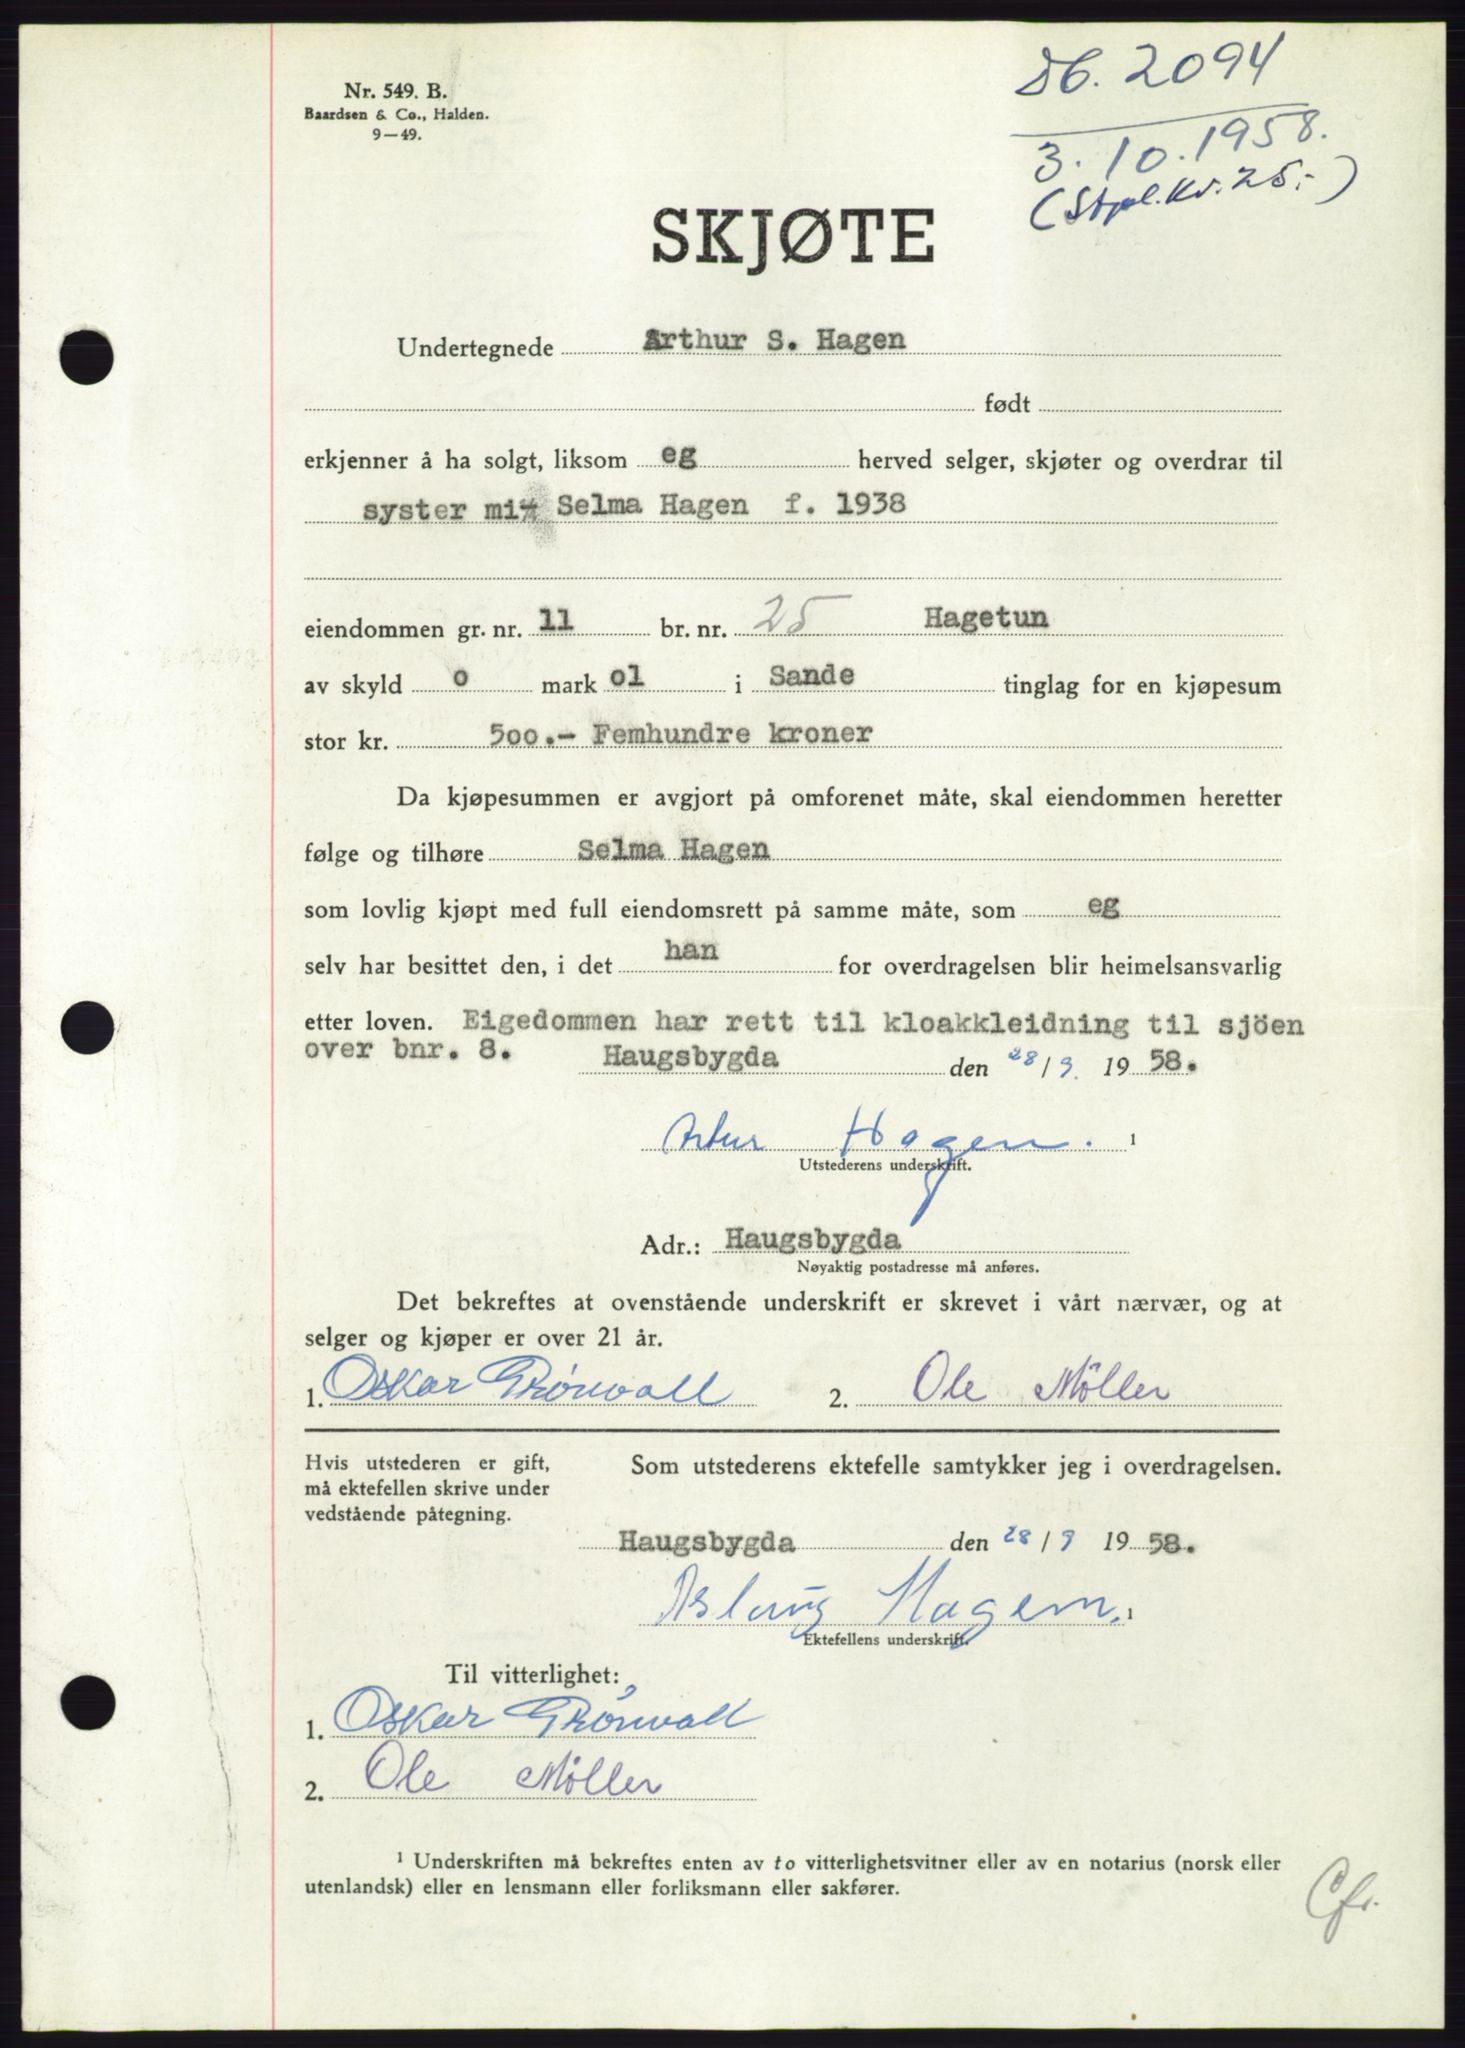 Nr. 549. B.
Baardsen & Co., Halden.
9—49.
Db. 2094
3. 10. 1958.
(Stpl. kr. 25.-)
SKJØTE
Undertegnede Arthur S. Hagen
født
erkjenner å ha solgt, liksom eg herved selger, skjøter og overdrar til
syster mi Selma Hagen f. 1938
eiendommen gr. nr. 11 br. nr. 25 Hagetun
av skyld o mark ol i Sande tinglag for en kjøpesum
stor kr. 500.- Femhundre kroner
Da kjøpesummen er avgjort på omforenet måte, skal eiendommen heretter
følge og tilhøre Selma Hagen
som lovlig kjøpt med full eiendomsrett på samme måte, som eg
selv har besittet den, i det han for overdragelsen blir heimelsansvarlig
etter loven. Eigedommen har rett til kloakkleidning til sjöen
over bnr. 8. Haugsbygda den 28/9. 19 58.
Artur Hagen. 1
Utstederens underskrift.
Adr.: Haugsbygda
Nøyaktig postadresse må anføres.
Det bekreftes at ovenstående underskrift er skrevet i vårt nærvær, og at
selger og kjøper er over 21 år.
1. Oskar Grönvall 2. Ole Möller
Hvis utstederen er gift,
må ektefellen skrive under
vedstående påtegning.
Som utstederens ektefelle samtykker jeg i overdragelsen.
Haugsbygda den 28/9 19 58.
Aslaug Hagen. 1
Ektefellens underskrift.
Til vitterlighet:
1. Oskar Grönvall
2. Ole Möller
1 Underskriften må bekreftes enten av to vitterlighetsvitner eller av en notarius (norsk eller
utenlandsk) eller en lensmann eller forliksmann eller sakfører.
Cfr.